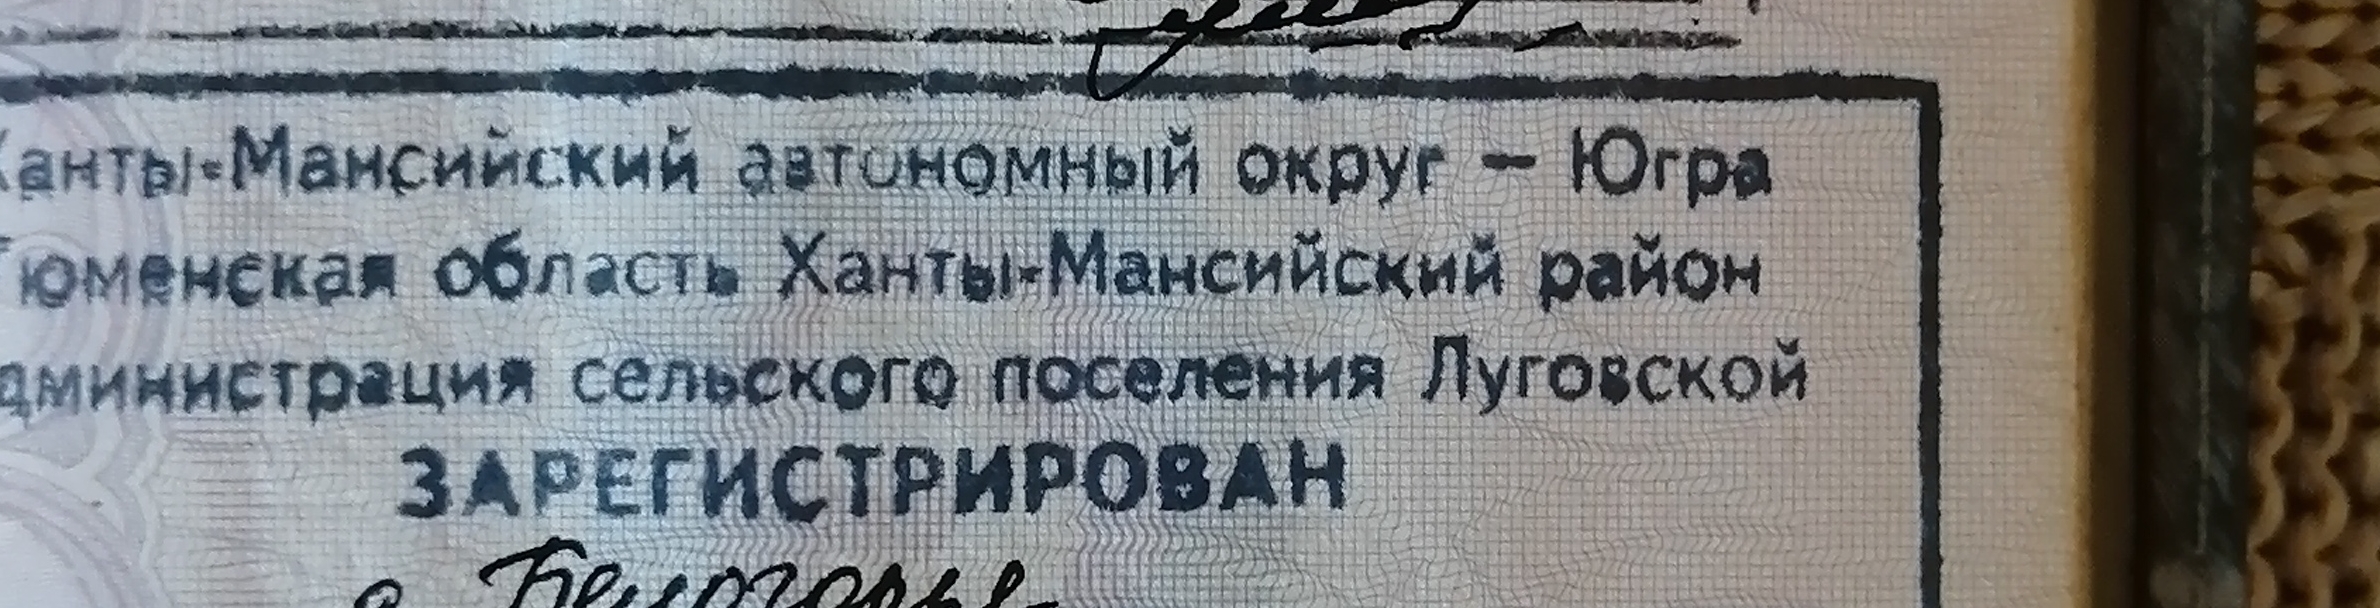 Ханты-Мансийский автономный округ – Югра
Тюменская область Ханты-Мансийский район
администрация сельского поселения Луговской
ЗАРЕГИСТРИРОВАН
Белогорье